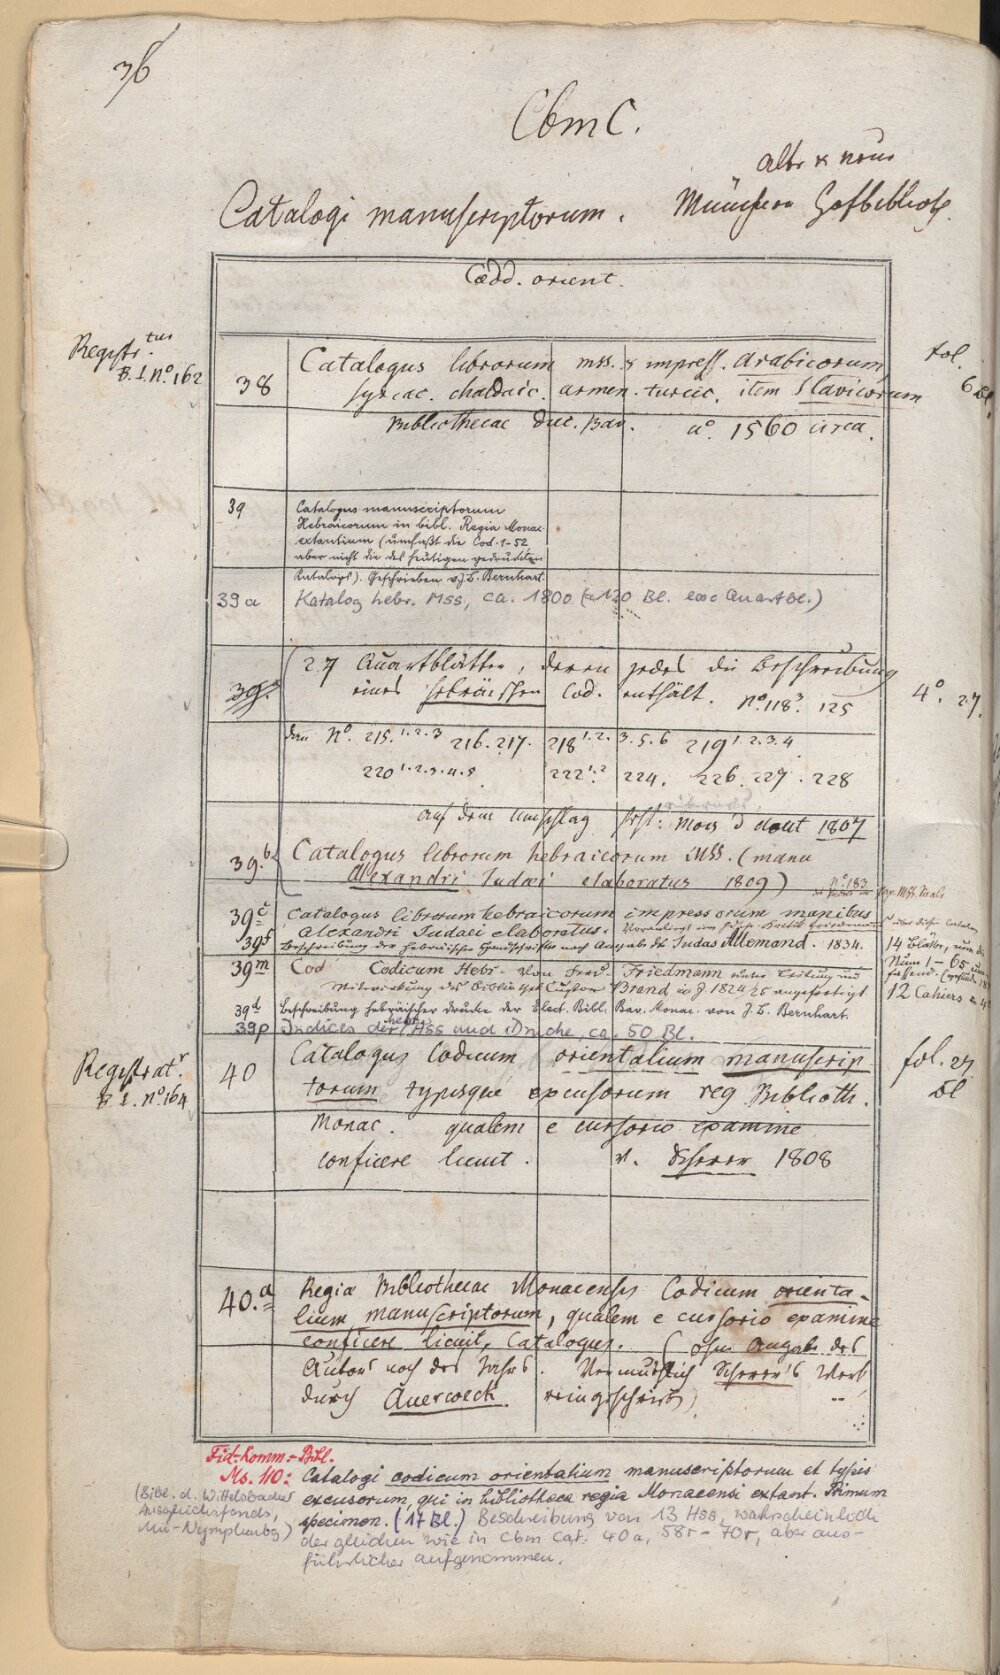 36
CbmC.
alte & neue
Catalogi manuscriptorum. Münchener Hofbiblioth.
Codd. orient.
Registr.tur
B. I. No. 162
38 Catalogus librorum mss. & impress. Arabicorum, fol.
syriac. chaldaic. armen. turcic. item Slavicorum 6 Bl.
Bibliothecae duc. Bav. ao. 1560 circa.
39 Catalogus manuscriptorum
Hebraicorum in bibl. Regia Monac.
extantium (umfaßt die Cod. 1-52
aber nicht die des heutigen gedruckten
Katalogs). Geschrieben v. J. B. Bernhart.
39a Katalog hebr. Mss, ca. 1800 (ca 120 Bl. lose Quartbl.)
39.a (27 Quartblätter, deren jedes die Beschreibung
eines hebräischen Cod. enthält. No. 118.3 125 4o. 27.
dann No. 215.1.2.3 216.217. 218 1.2.3.5.6 219 1.2.3.4.
220 1.2.3.4.5 222 1.2 224. 226. 227. 228
auf dem Umschlag steht: Mois d'Aout 1807
39.b Catalogus librorum hebraicorum Mss. (manu
Alexandri Judaei elaboratus 1809) No. 183
39c Catalogus librorum hebraicorum impressorum manibus
Alexandri Judaei elaboratus.
39f Beschreibung der hebräischen Handschriften nach Angabe des Judas Allemand. 1834. 14 Blätter,
39m Cod Codicum Hebr. von Ferd. Friedmann unter Leitung und Num 1-65
Mitwirkung des Bibliothek Custos Brand im J 1824/25 angefertigt. 12 Cahiers in 4o
39d Beschreibung hebräischer Drucke der Elect. Bibl. Bav. Monac. von J. B. Bernhart.
39p Indices der hebr. Hss und Drucke ca. 50 Bl.
Registrat.r
B. I. No. 164
40 Catalogus Codicum orientalium manuscrip fol. 27
torum typisque excusorum reg Biblioth. Bl
Monac. qualem e cursorio examine
conficere licuit. v. Scherer 1808
40.a Regia Bibliothecae Monacensis Codicum orienta-
lium manuscriptorum, qualem e cursorio examine
conficere licuit, Catalogus. (ohne Angabe des
Autors noch des Jahrs. Vermuthlich Scherer's Werk
durch Auerweck reingeschrieb)
Fid.-Komm.-Bibl.
Ms. 110: Catalogi codicum orientalium manuscriptorum et typis
(Bibl. d. Wittelsbacher excusorum, qui in bibliotheca regia Monacensi extant. Primum
Ausgleichsfonds, specimen. (17 Bl.) Beschreibung von 13 Hss, wahrscheinlich
Mü-Nymphenbg) der gleichen wie in Cbm Cat. 40a, 58r-70r, aber aus-
führlicher aufgenommen.